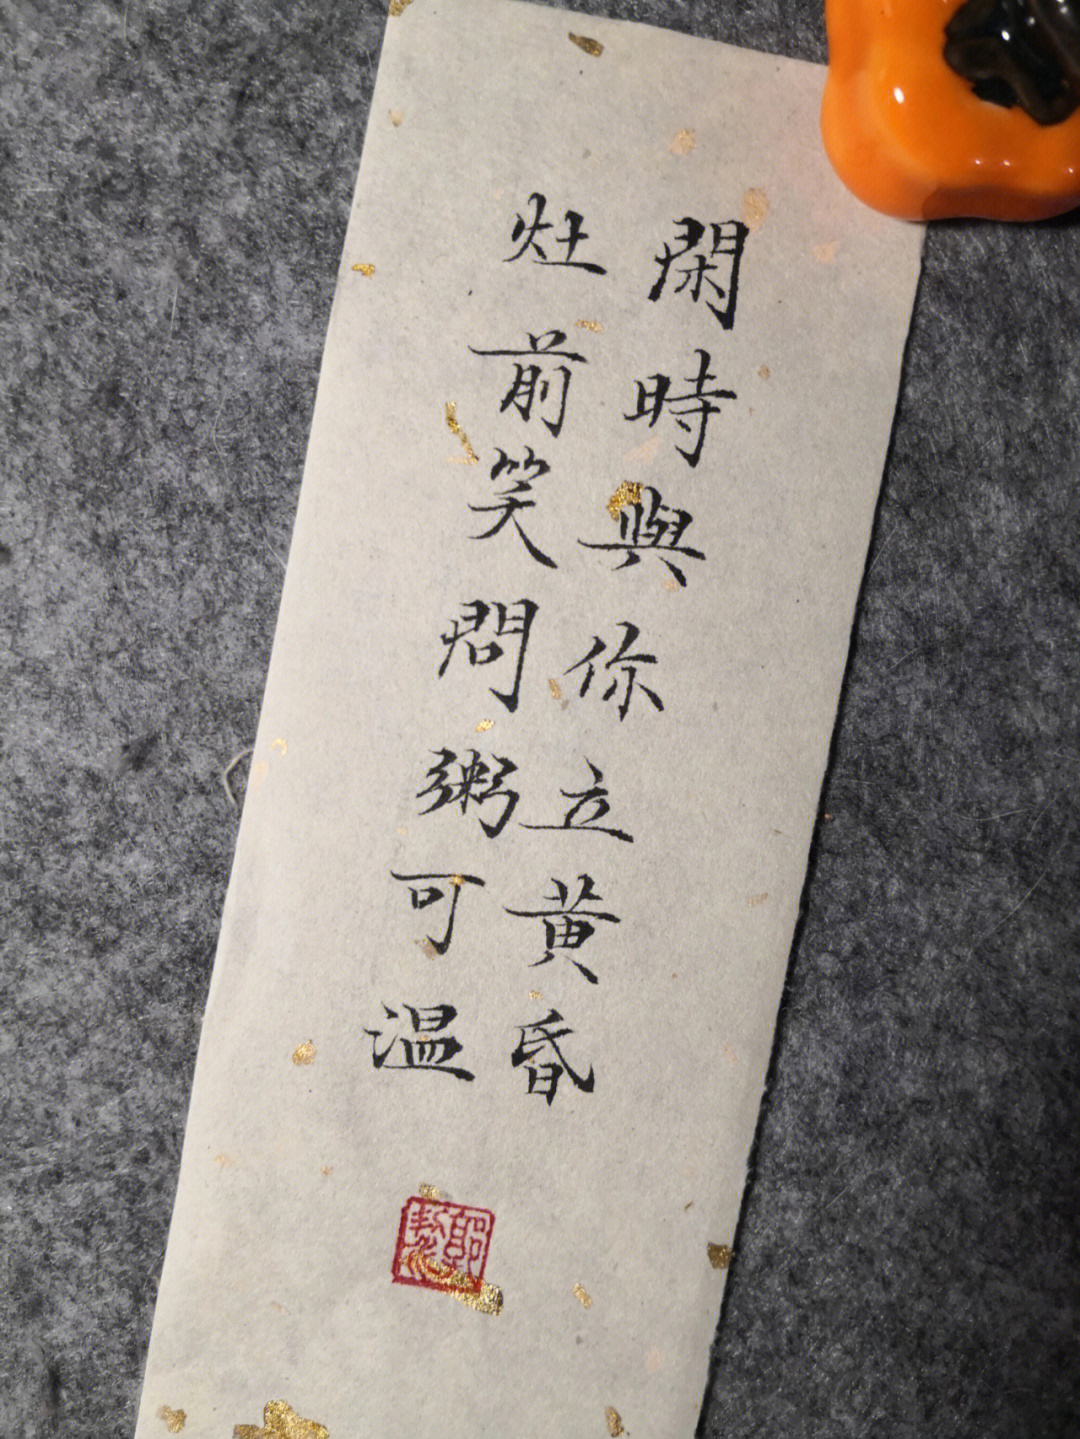 閑時與你立黄昏
灶前笑問粥可溫